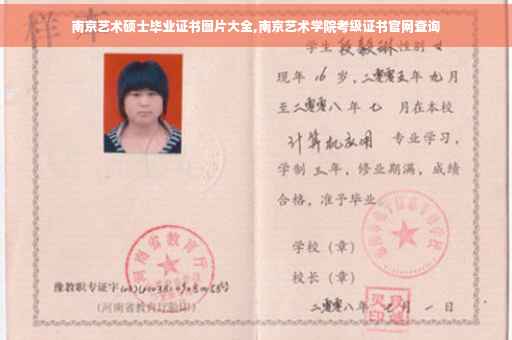 南京艺术硕士毕业证书图片大全,南京艺术学院考级证书官网查询
样本
学生 段毅琳 性别 女
现年 16 岁,二零零五年 九月
至二零零八年 七 月在本校
计算机应用 专业学习,
学制 三 年,修业期满,成绩
合格,准予毕业
学校(章)
校长(章)
二零零八年 七 月 一 日
河南省教育厅
豫教职专证字
(河南省教育厅验印)